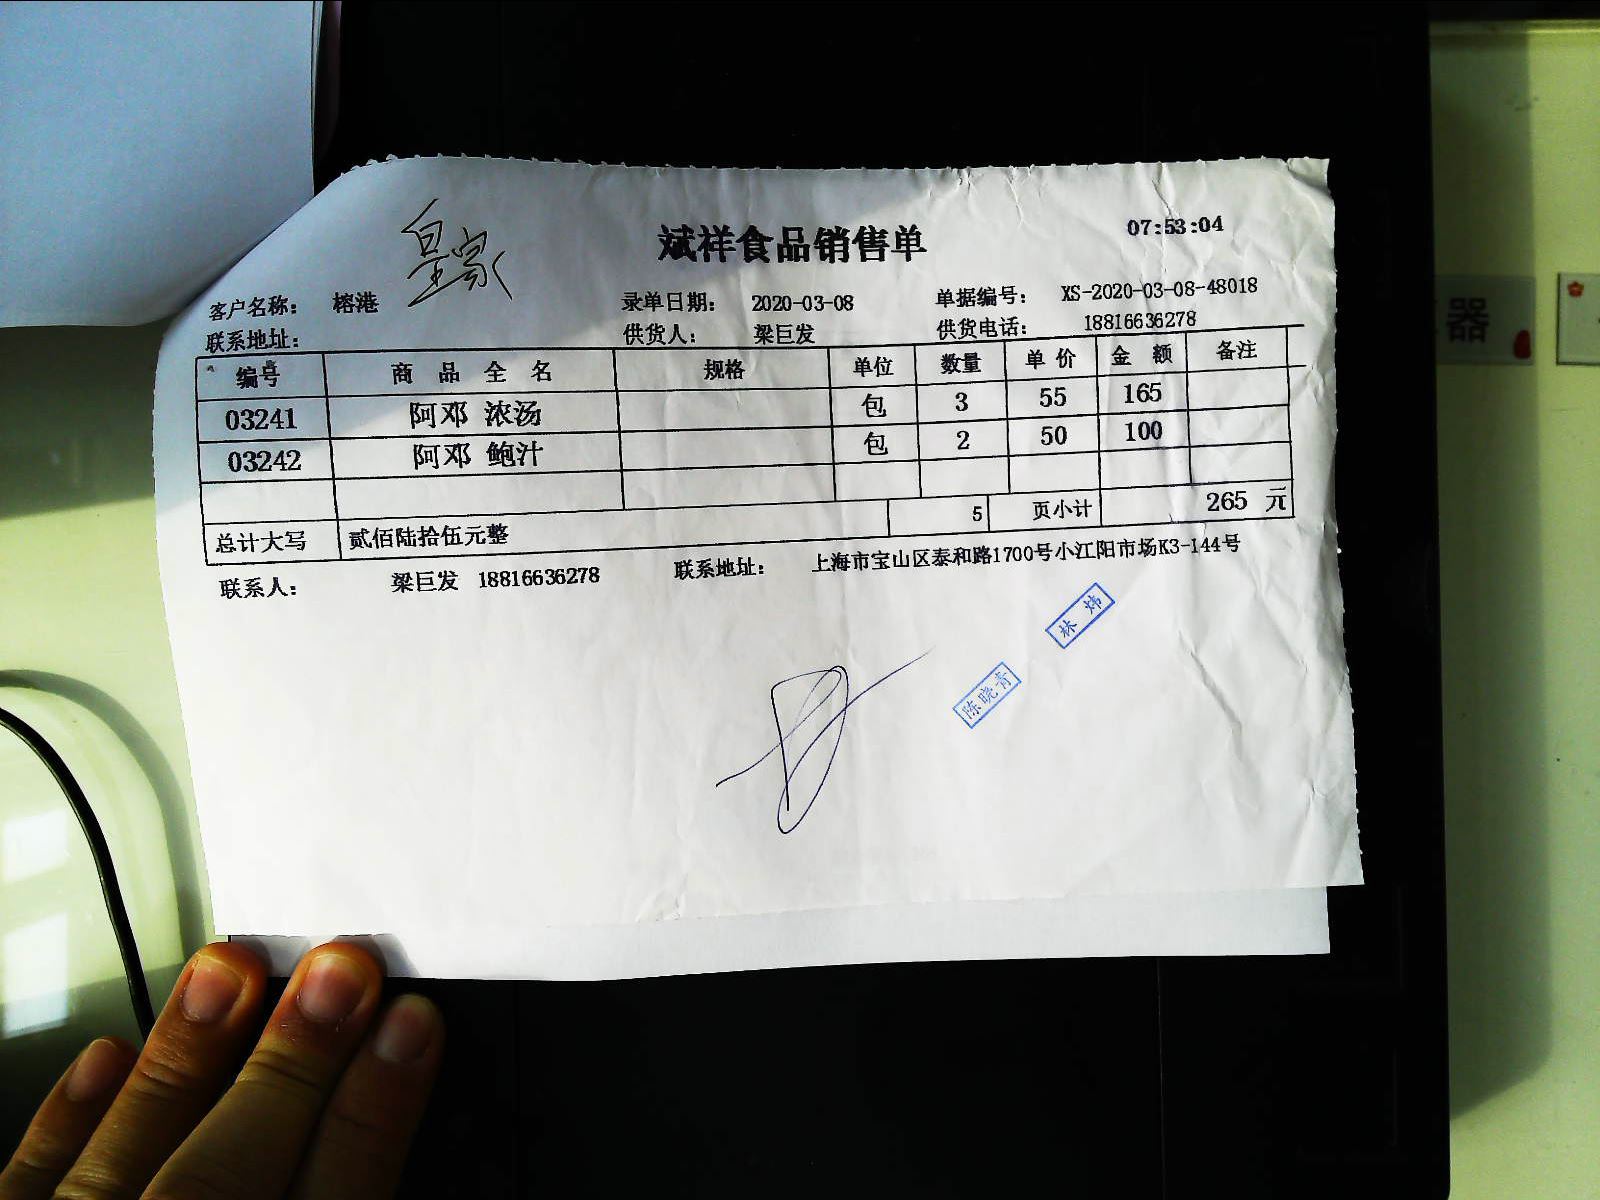 皇家
斌祥食品销售单
07:53:04
客户名称: 榕港 录单日期: 2020-03-08 单据编号: XS-2020-03-08-48018
联系地址: 供货人: 梁巨发 供货电话: 18816636278
编号 商品全名 规格 单位 数量 单价 金额 备注
03241 阿邓 浓汤 包 3 55 165
03242 阿邓 鲍汁 包 2 50 100
总计大写 贰佰陆拾伍元整 5 页小计 265 元
联系人: 梁巨发 18816636278 联系地址: 上海市宝山区泰和路1700号小江阳市场K3-144号
林炜
陈晓青
器